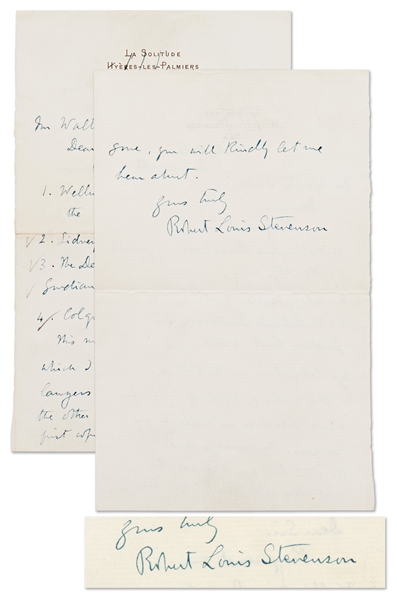 La Solitude
Hyères-les-Palmiers
Mr Wall
Dear
1. Wellin
the
2. Sidney
3. The De
4. Colq
This
which I
the other
first cop
gone, you will kindly let me
hear about.
Yours truly
Robert Louis Stevenson
Yours truly
Robert Louis Stevenson